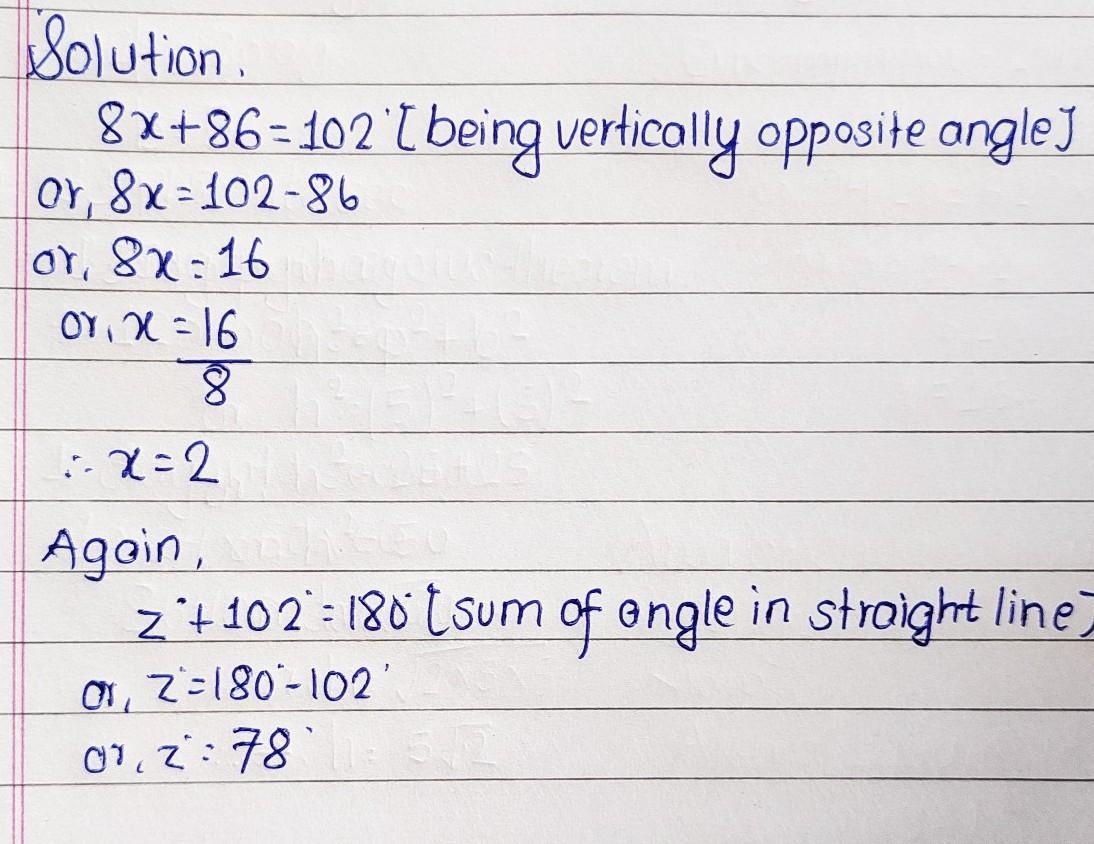 Solution.
8x+86=102° [being vertically opposite angle]
or, 8x=102-86
or, 8x=16
or, x=16
8
∴ x=2
Again,
z°+102°=180° [sum of angle in straight line]
or, z°=180°-102°
or, z°=78°